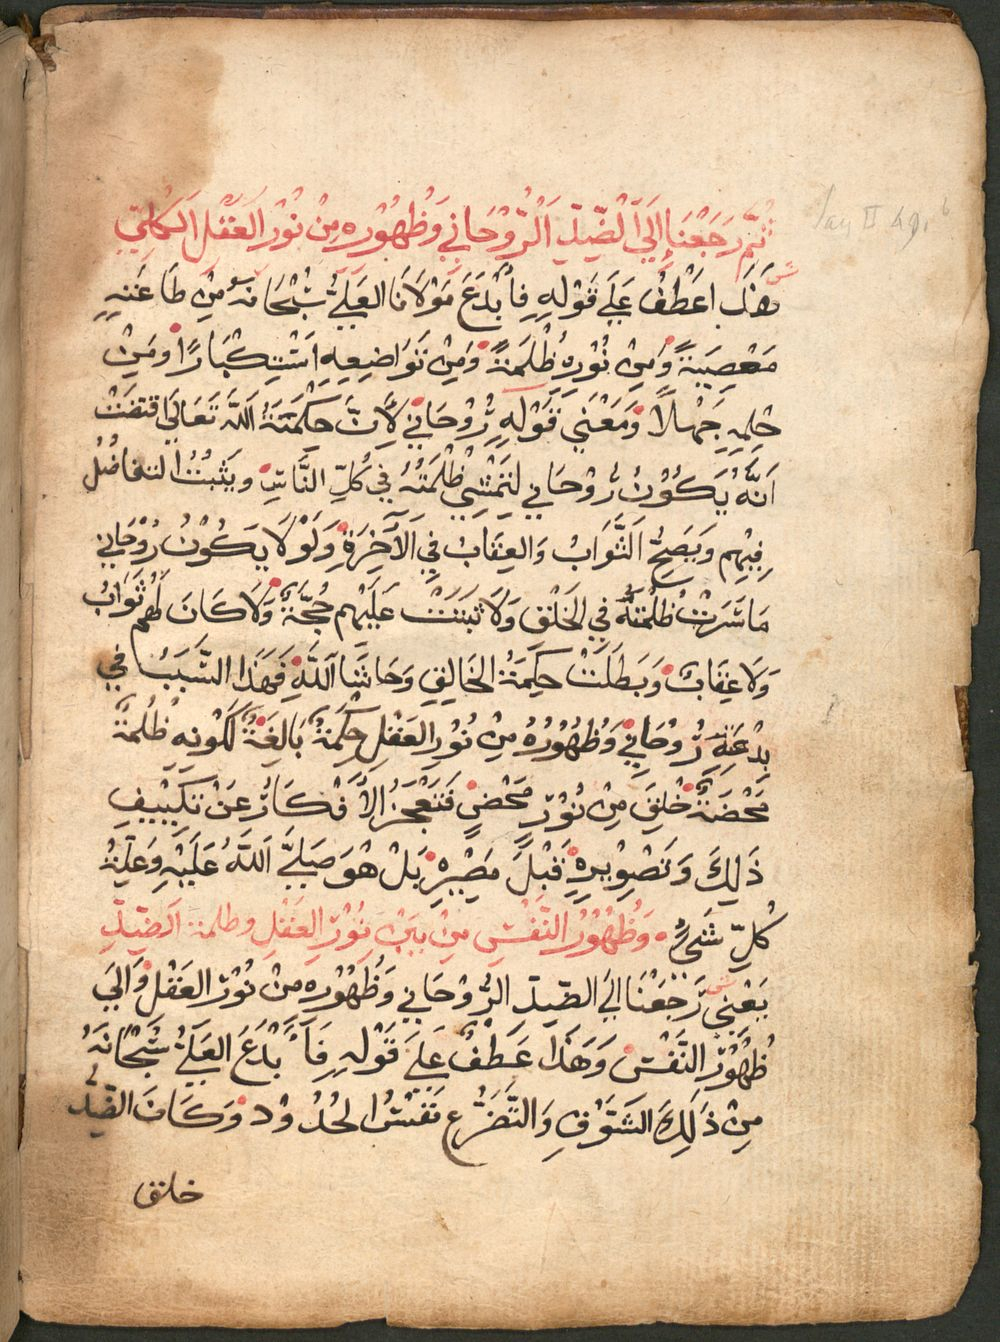 ثُمَّ رَجَعْنَا إِلَى الضِّدِّ الرُّوْحَانِي وَظُهُوْرِه مِنْ نُوْرِ العَقْلِ الكُلِّيّ
ش
هَذَا عَطْفٌ عَلَى قَوْلِهِ فَأَبْدَعَ مَوْلَانَا العَلِيُّ سُبْحَانَهُ مِنْ طَاعَتِهِ
مَعْصِيَةً وَمِنْ نُوْرِهِ ظُلْمَةً وَمِنْ تَوَاضِعِهِ اسْتِكْبَارًا وَمِنْ
حِلْمِهِ جَهْلًا وَمَعْنَى قَوْلِهِ رُوْحَانِي لَأَنَّ حِكْمَةَ اللَّه تَعَالَى اقتضَتْ
اَنَّهُ يَكُوْنُ رُوْحَانِي لِتَمْشِي ظُلْمَتُهُ فِي كُلِّ النَّاسِ وَيَثْبُتُ التفاضُلُ
فِيْهِم وَيَصِحُّ الثَّوَابُ وَالعِقَابُ فِي الآخِرَةِ وَلَوْلَا يَكُوْنُ رُوْحَانِي
مَا سَرَتْ ظُلْمَتُهُ فِي الخَلْق وَلَا ثَبَتَتْ عَلَيْهِم حُجَّةٌ وَلَا كَانَ لَهُم ثَوَابُ
وَلَا عِقَابٌ وَبَطَلَتْ حِكْمَةُ الخَالِقِ وَحَاشَا اللَّهِ فَهَذَا السَّبَبُ فِي
بِدْعَتِهِ رُوْحَانِي وَظُهُوْرُهُ مِنْ نُوْرِ العَقْلِ حِكْمَةٌ بَالِغَةٌ لِكَوْنِهِ ظُلْمَةً
مَحْضَةً خُلِقَ مِنْ نُوْرٍ مَحْضٍ فَتَعْجَزُ الأَفْكَارُ عَنْ تَكْيِيْفِ
ذَلِكَ وَتَصْوِيْرِهِ قَبْلَ مَصِيْرِهِ بَلْ هُوَ صَلَّى اللَّهُ عَلَيْهِ وَعِلَّةُ
كُلِّ شَيْءٍ وَظُهُوْرُ النَّفْسِ مِنْ بَيْنِ نُوْرِ العَقْلِ وظلمة الضِّدِّ
ش
يَعْنِي رَجَعْنَا الَى الضِّدِّ الرُّوْحَانِي وَظُهُوْرِهِ مِنْ نُوْرِ العَقْلِ وَالَى
ظُهُوْرِ النَّفْسِ وَهَذَا عَطْفٌ عَلَى قَوْلِهِ فَأَبْدَعَ العَلِيُّ سُبْحَانَهُ
مِنْ ذَلِكَ الشَّوْقِ وَالتَّضَرُّعِ نَفْسُ الحُدُوْد وَكَانَ الضِّدُّ
خلق